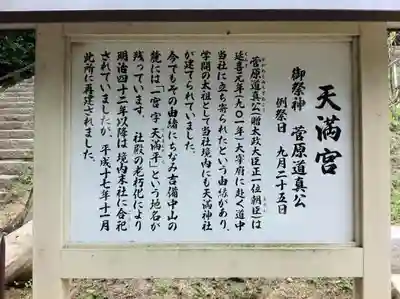 天満宮
御祭神　菅原道真公
例祭日　九月二十五日
菅原道真公（贈太政大臣正一位朝臣）は
延喜元年（九〇一年）大宰府に赴く道中
当社に立ち寄られたという由縁があり、
学問の太祖として当社境内にも天満神社
が建てられていました。
今でもその由緒にちなみ吉備中山の
麓には「宮字天満平」という地名が
残っています。社殿の老朽化により
明治四十二年以降は境内末社に合祀
されていましたが、平成十七年十一月
此所に再建されました。